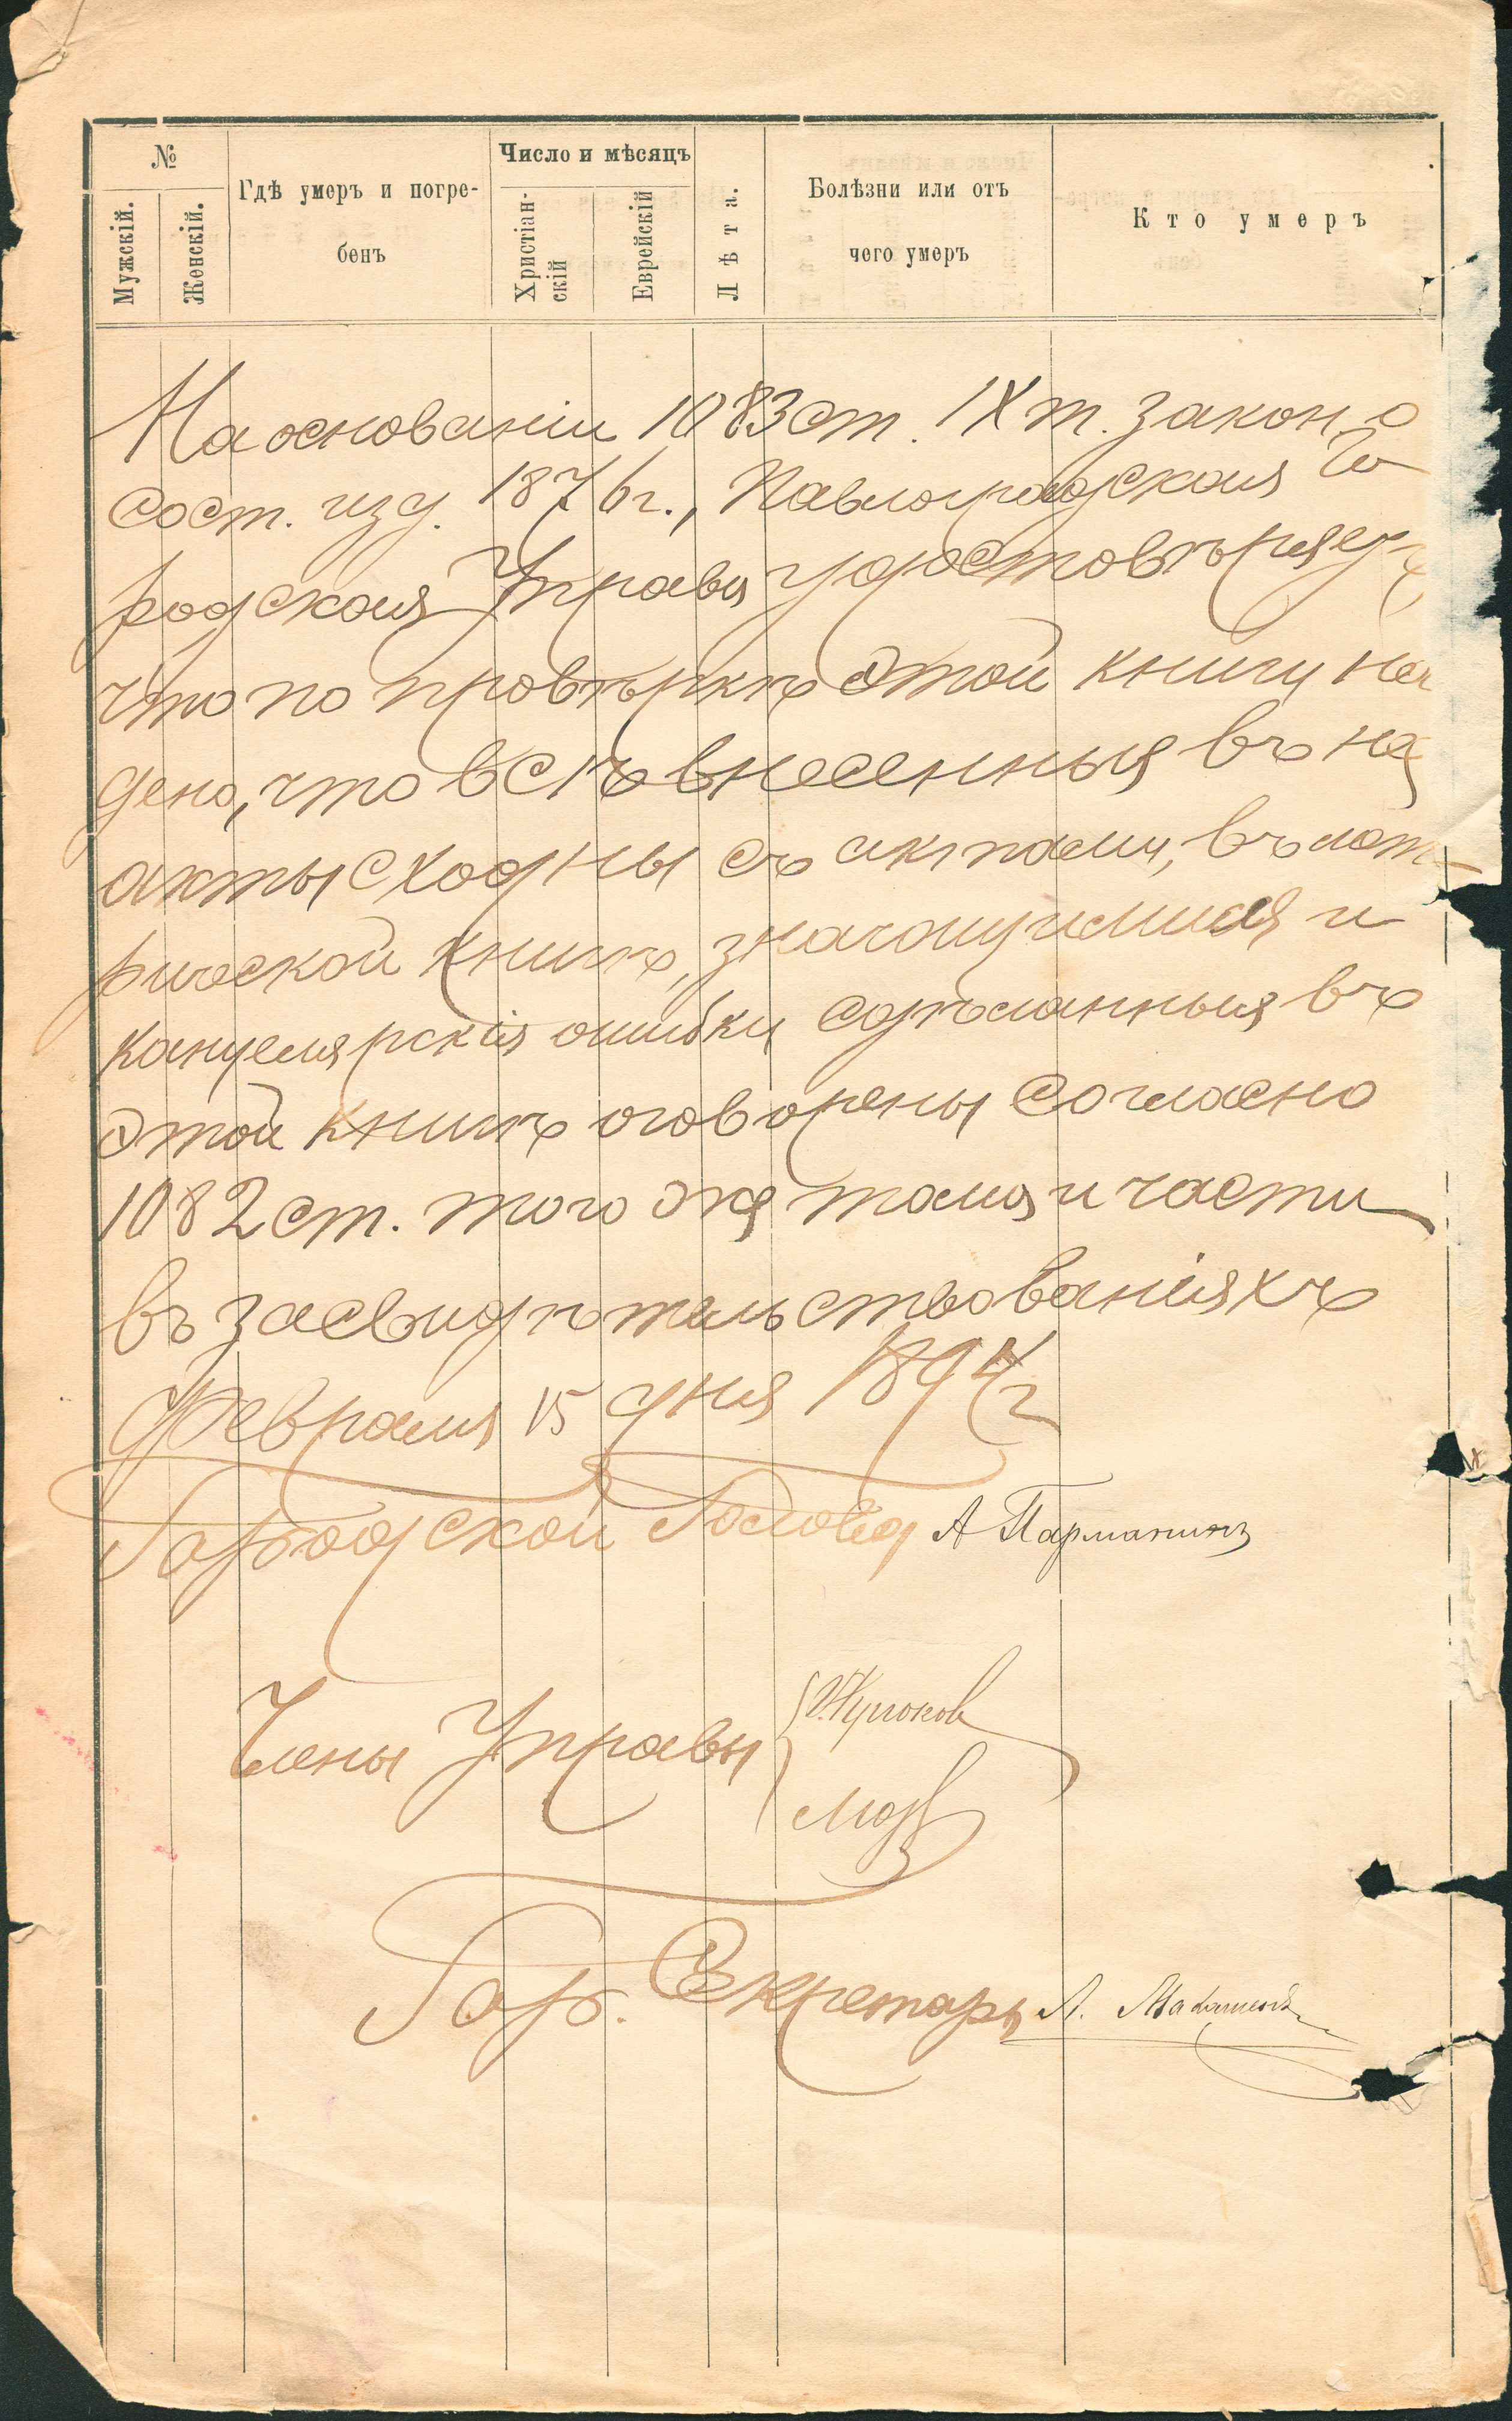 №
Число и мѣсяцъ
Гдѣ умеръ и погре-
бенъ
Болѣзни или отъ
чего умеръ
Кто умеръ
Мужскій.
Женскій.
Христіан-
скій
Еврейскій
Лѣта.
На основаніи 1083 ст. IX т. закон. о
сост. изд. 1876 г., Павлоградская Го
родская Управа удостовѣряет
что по провѣркѣ этой книги най
дено, что всѣ внесенныя въ нея
акты сходны съ актами, въ мет
рической книгѣ, значащимися и
канцелярскія ошибки сдѣланныя въ
этой книгѣ оговорены согласно
1082 ст. того же тома и части
въ засвидѣтельствованіяхъ
Февраля 15 дня 1894 г
Городской Голова А Парманинъ
Члены Управы
Гор. Секретарь